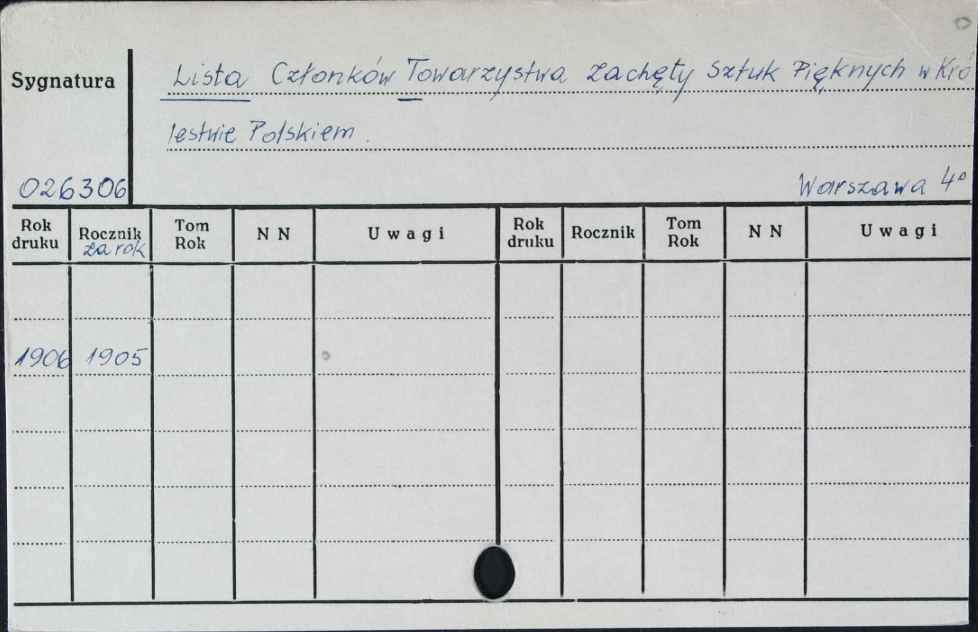 Sygnatura
Lista Członków Towarzystwa Zachęty Sztuk Pięknych w Kró
lestwie Polskiem.
026306
Warszawa 4°
Rok druku Rocznik za rok Tom Rok N N Uwagi Rok druku Rocznik Tom Rok N N Uwagi
1906 1905